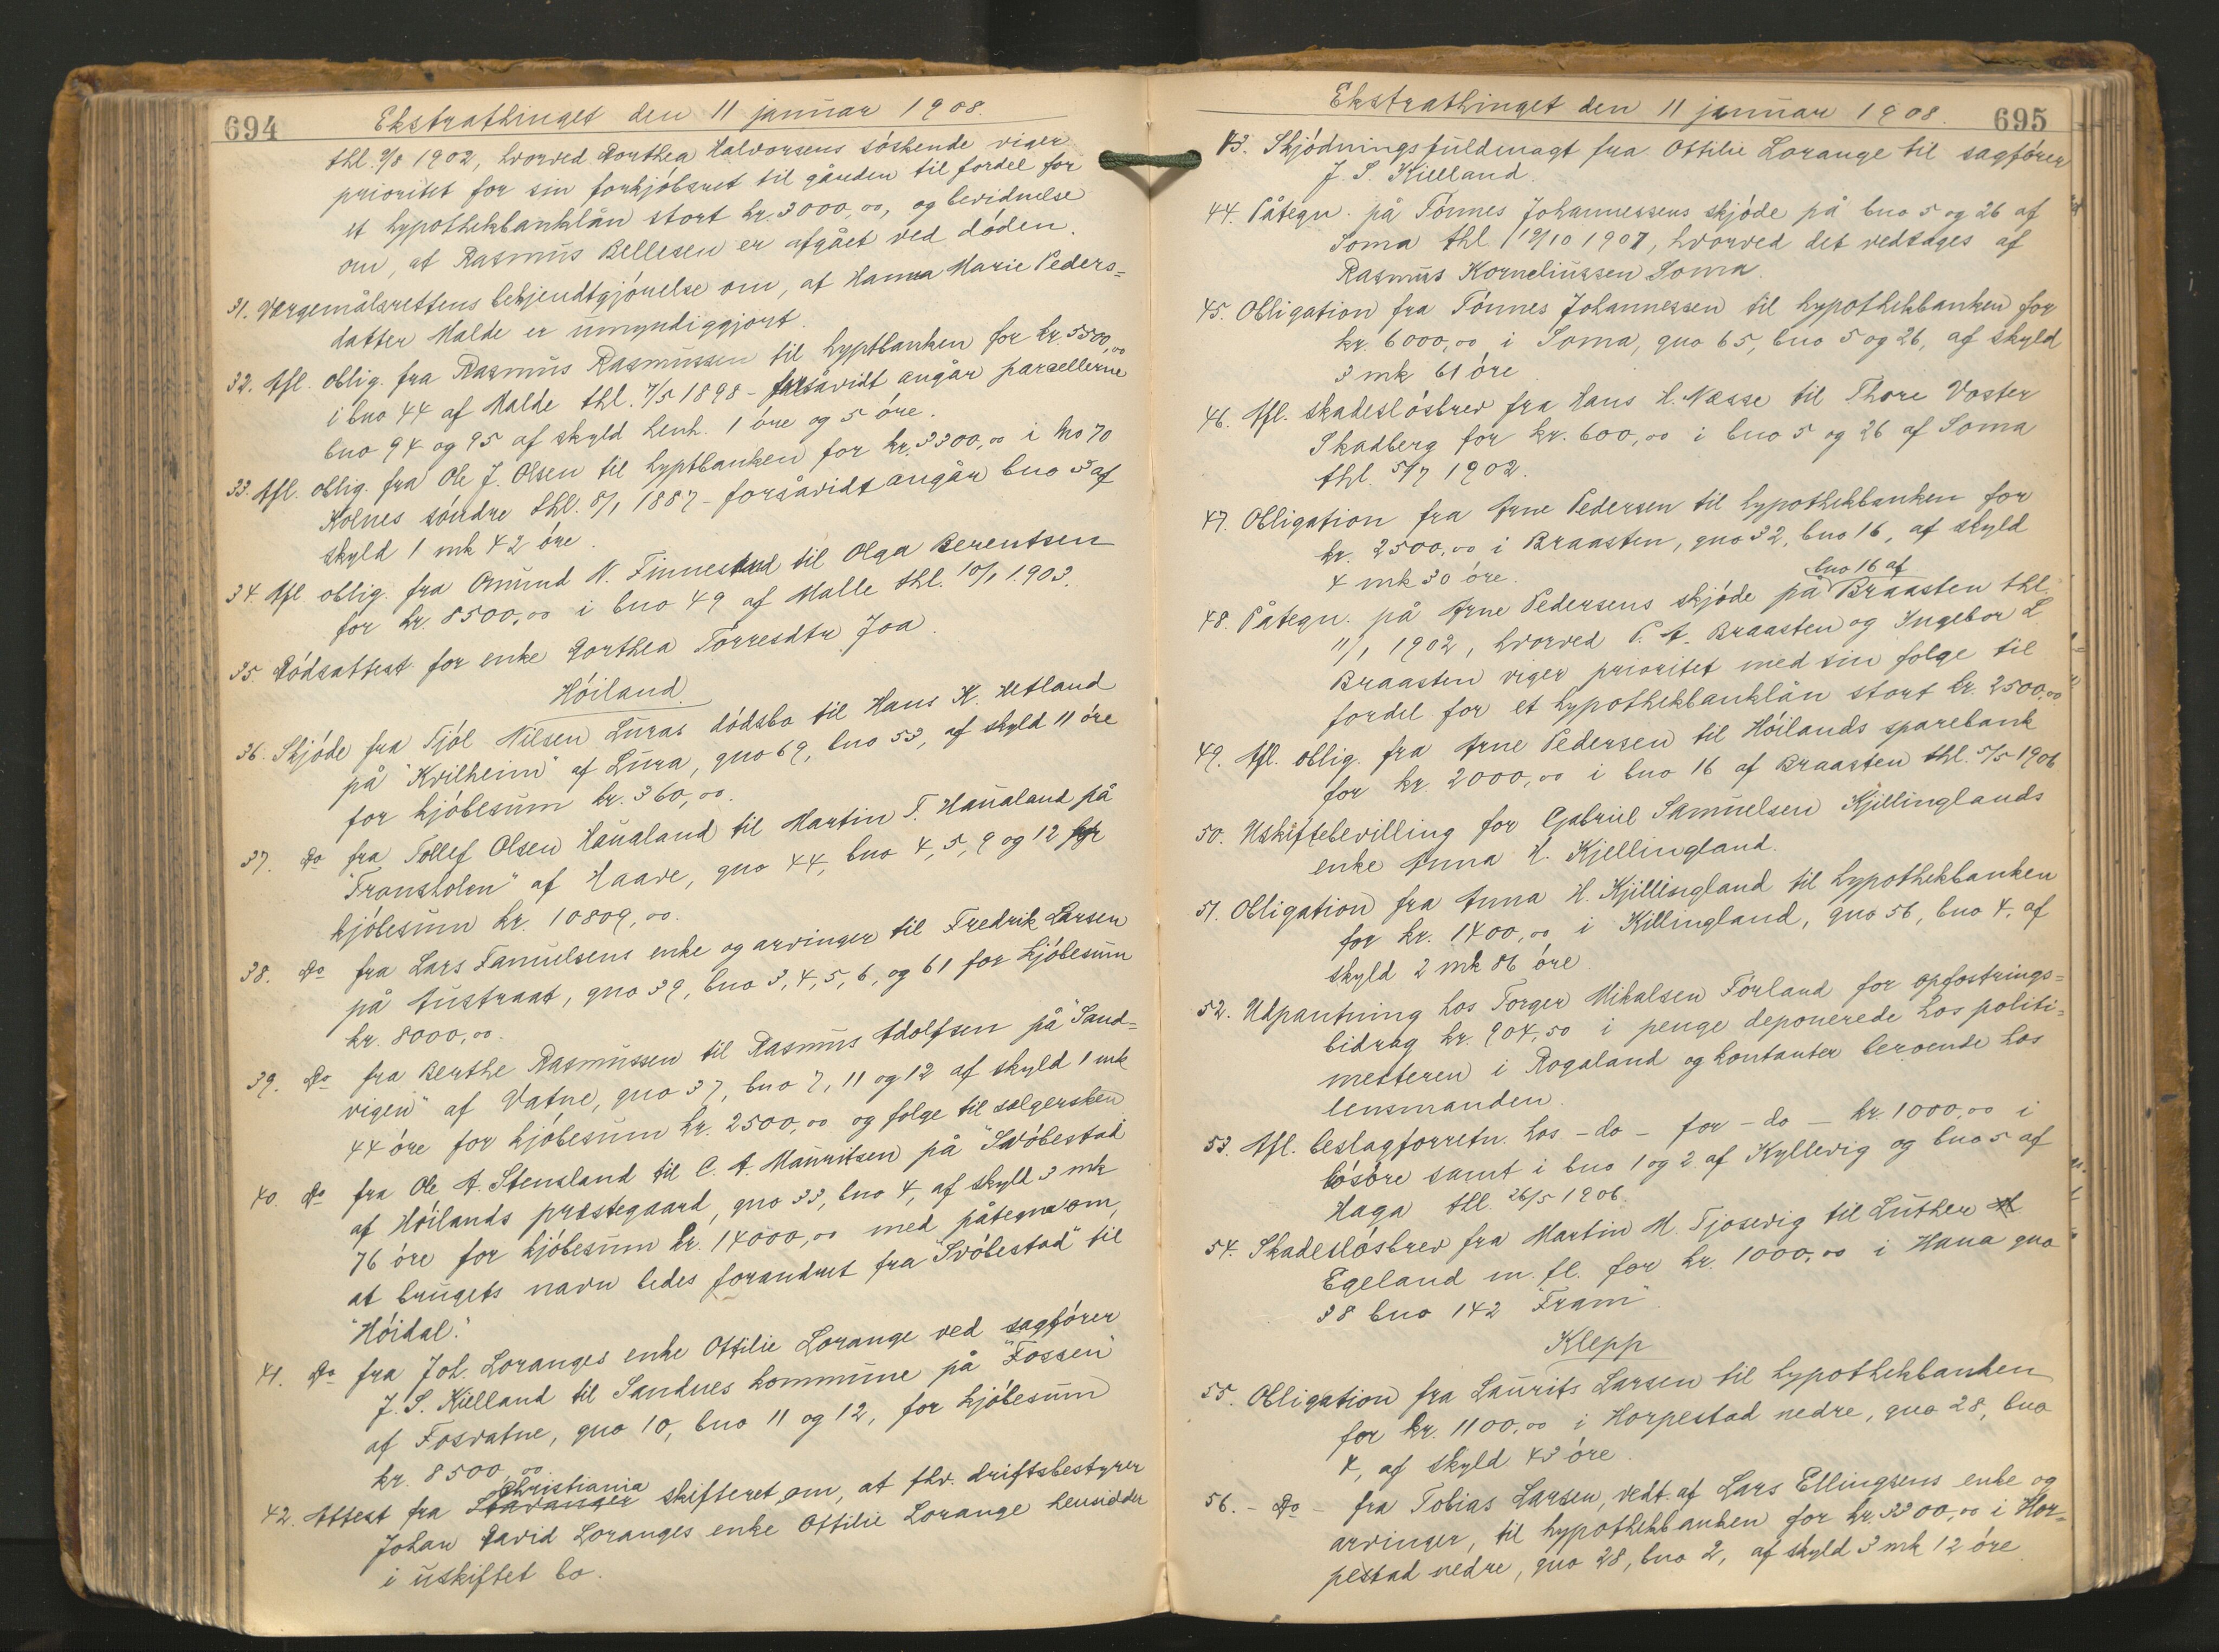 694
Ekstrathinget den 11 januar 1908.
thl. 9/8 1902, hvorved Dorthea Halvorsens söskende viger
prioritet for sin forkjöbsret til gården til fordel for
et hypothekbanklån stort kr. 3000,00, og bevidnelse
om, at Rasmus Bellesen er afgået ved döden.
31. Værgemålsrettens bekjendtgjörelse om, at Hanna Marie Peders=
datter Malde er umyndiggjort.
32. Afl. oblig. fra Rasmus Rasmussen til hyptbanken for kr. 5500,00
i bno 44 af Malde thl. 7/5 1898 - forsåvidt angår parcellerne
bno 94 og 95 af skyld henh. 1 öre og 5 öre.
33. Afl. oblig. fra Ole J. Olsen til hyptbanken for kr. 3300,00 i No 70
Kolnes söndre thl. 8/1 1887 - forsåvidt angår bno 5 af
skyld 1 mk 42 öre.
34. Afl oblig. fra Omund N. Finnestad til Olga Berentsen
for kr. 8500,00 i bno 49 af Malle thl. 10/1 1903.
35. Dödsattest for enke Dorthea Torresdtr Joa.
Höiland.
36. Skjöde fra Tjöl Nilsen Luras dödsbo til Hans K. Hetland
på "Kvilheim" af Lura, gno 69, bno 53, af skyld 11 öre
for kjöbesum kr. 360,00.
37. Do fra Tollef Olsen Haualand til Martin T. Haualand på
"Fransholen" af Haave, gno 44, bno 4, 5, 9 og 12 for
kjöbesum kr. 10809,00.
38. Do fra Lars Samuelsens enke og arvinger til Fredrik Larsen
på Austraat, gno 39, bno 3, 4, 5, 6, og 61 for kjöbesum
kr. 8000,00.
39. Do fra Berthe Rasmussen til Rasmus Adolfsen på "Sand=
vigen" af Vatne, gno 37, bno 7, 11 og 12 af skyld 1 mk
44 öre for kjöbesum kr. 2500,00 og folge til sælgersken
40. Do fra Ole A. Stensland til C. A. Mauritsen på "Svöbestad"
af Höilands præstegaard, gno 33, bno 4, af skyld 3 mk
76 öre for kjöbesum kr. 14000,00 med påtegn om,
at brugets navn bedes forandret fra "Svöbestad" til
"Höidal."
41. Do fra Joh. Loranges enke Ottilie Lorange ved sagförer
J. S. Kielland til Sandnes kommune på "Fossen"
af Fosvatne, gno 10, bno 11 og 12, for kjöbesum
kr. 8500,00
42. Attest fra Stavanger Christiania skifteret om, at fhv. driftsbestyrer
Johan David Loranges enke Ottilie Lorange hensidder
i uskiftet bo.
695
Ekstrathinget den 11 januar 1908.
43. Skjödningsfuldmagt fra Ottilie Lorange til sagförer
J. S. Kielland.
44. Påtegn. på Tönnes Johannessens skjöde på bno 5 og 26 af
Soma thl 12/10 1907, hvorved det vedtages af
Rasmus Korneliussen Soma.
45. Obligation fra Tönnes Johannessen til hypothekbanken for
kr. 6000,00 i Soma, gno 65, bno 5 og 26, af skyld
3 mk 61 öre
46. Afl. skadeslösbrev fra Hans H. Næsse til Thore Voster
Skadberg for kr. 600,00 i bno 5 og 26 af Soma
thl. 5/7 1902.
47. Obligation fra Arne Pedersen til hypothekbanken for
kr. 2500,00 i Braasten, gno 32, bno 16, af skyld
4 mk 30 öre.
48. Påtegn. på Arne Pedersens skjöde på bno 16 af Braasten thl.
11/1 1902, hvorved P. A. Braasten og Ingebor L
Braasten viger prioritet med sin folge til
fordel for et hypothekbanklån stort kr. 2500,00
49. Afl. oblig. fra Arne Pedersen til Höilands sparebank
for kr. 2000,00 i bno 16 af Braasten thl. 5/5 1906
50. Uskiftebevilling for Gabriel Samuelsen Kjillinglands
enke Anna H. Kjellingland.
51. Obligation fra Anna H. Kjillingland til hypothekbanken
for kr. 1400,00 i Killingland, gno 56, bno 4, af
skyld 2 mk 86 öre
52. Udpantning hos Torger Mikalsen Förland for opfostrings=
bidrag kr. 904,50 i penge deponerede hos politi=
mesteren i Rogaland og kontanter beroende hos
lensmanden.
53. Afl. beslagforretn. hos - do - for - do - kr 1000,00 i
lösöre samt i bno 1 og 2 af Kyllevig og bno 5 af
Haga thl. 26/5 1906.
54. Skadeslösbrev fra Martin M. Tjosevig til Luther
Egeland m. fl. for kr. 1000,00 i Hana gno
38 bno 142 "Fram".
Klepp
55. Obligation fra Laurits Larsen til hypothekbanken
for kr. 1100,00 i Horpestad nedre, gno 28, bno
4, af skyld 43 öre.
56. - Do - fra Tobias Larsen, vedt. af Lars Ellingsens enke og
arvinger, til hypothekbanken for kr. 3300,00 i Hor=
pestad nedre, gno 28, bno 2, af skyld 3 mk 12 öre